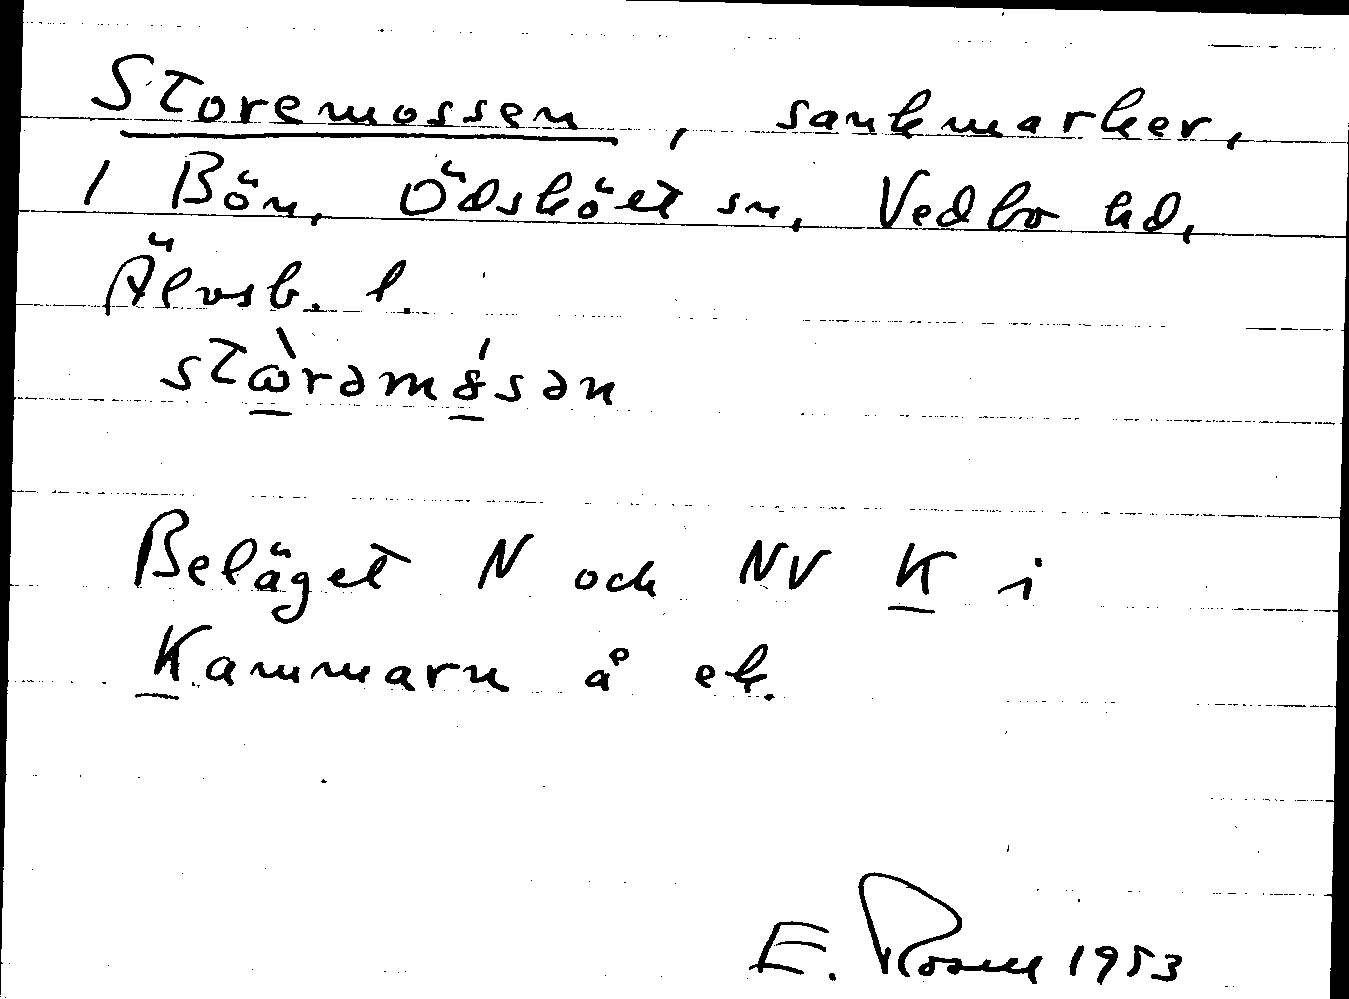 Storemossen, sankmarker,
1 Bön, Ödsköët sn, Vedbo hd,
Älvsb. l.
stὼ̲rəm8̲́sən
Beläget N och NV K i
Kammarn å ek.
E. Rosell 1953